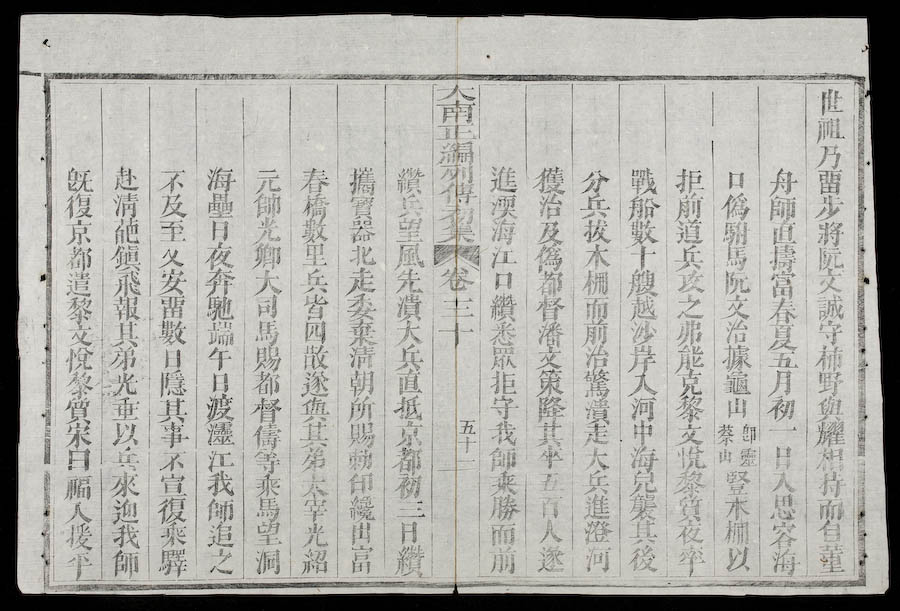 世祖乃畱步將阮文誠守柿野與耀相持而自董
舟師直擣富春夏五月初一日入思容海
口偽駙馬阮文治據龜山
卽靈
蔡山
豎木柵以
拒前道兵攻之弗能克黎文悅黎質夜率
戰船數十艘越沙岸入河中海兒襲其後
分兵拔木柵而前治驚潰走大兵進澄河
獲治及偽都督潘文策降其卒五百人遂
進澳海江口纘悉眾拒守我師乘勝而前
大南正編列傳初集 卷三十 五十一
纘兵望風先潰大兵直抵京都初三日纘
攜寶器北走委棄淸朝所賜勅印纔出富
春橋數里兵皆四散遂與其弟太宰光紹
元帥光卿大司馬賜都督儔等乘馬望洞
海壘日夜奔馳端午日渡𤅷江我師追之
不及至乂安畱數日隱其事不宣復乘驛
赴淸葩鎭飛報其弟光垂以兵來迎我師
旣復京都遣黎文悅黎質宋曰福入援平